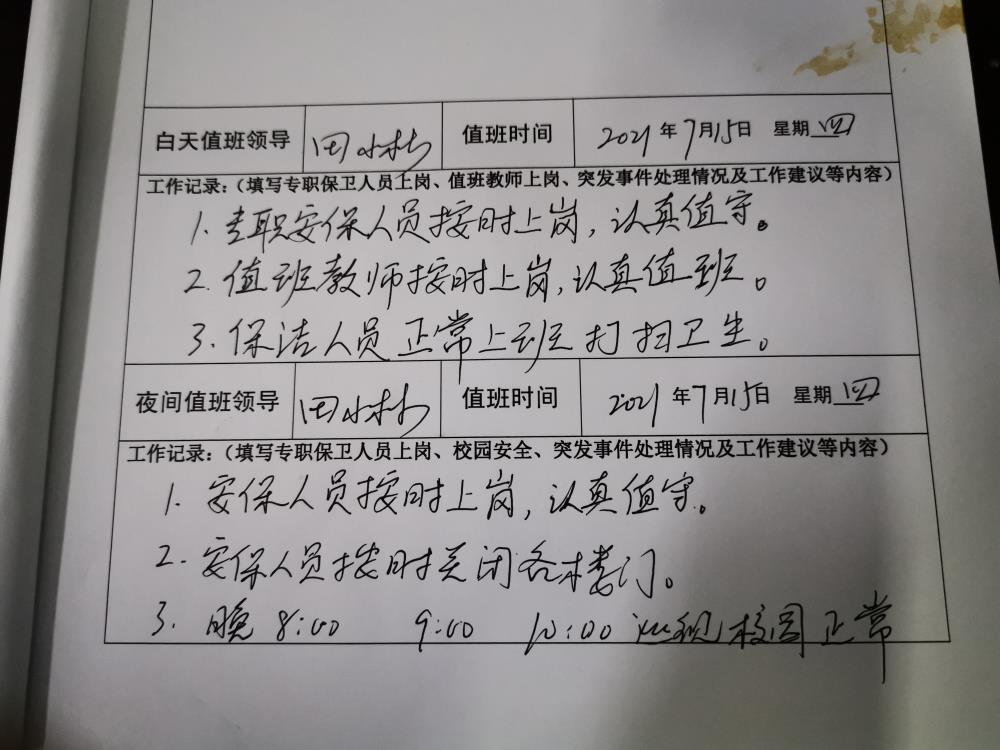 白天值班领导 田小林 值班时间 2021年7月15日 星期四
工作记录：（填写专职保卫人员上岗、值班教师上岗、突发事件处理情况及工作建议等内容）
1. 专职安保人员按时上岗，认真值守。
2. 值班教师按时上岗，认真值班。
3. 保洁人员正常上班打扫卫生。
夜间值班领导 田小林 值班时间 2021年7月15日 星期四
工作记录：（填写专职保卫人员上岗、校园安全、突发事件处理情况及工作建议等内容）
1. 安保人员按时上岗，认真值守。
2. 安保人员按时关闭各楼门。
3. 晚8:00 9:00 10:00 巡视校园正常